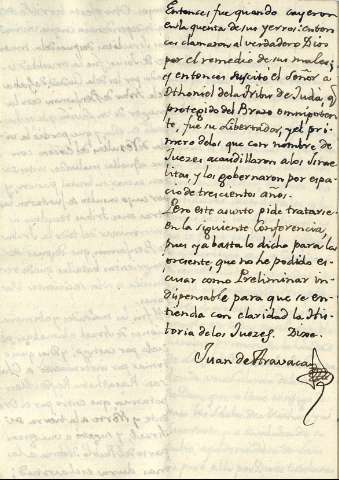 Entonces fue quando cayeron
en la quenta de sus yerros: enton-
ces clamaron al verdadero Dios
por el remedio de sus males;
y entonces suscitó el Señor a
Othoniel de la tribu de Judá, q
protegido del Brazo omnipoten-
te, fue su Libertador, y el pri-
mero de los que con nombre de
Juezes acaudillaron a los Israe-
litas, y los gobernaron por espa-
cio de trescientos años.
Pero este asunto pide tratarse
en la siguiente Conferencia,
pues ya basta lo dicho para la
presente, que no he podido es-
cusar como Preliminar in-
dispensable para que se en-
tienda con claridad la His-
toria de los Juezes. Dixe.
Juan de Aravaca